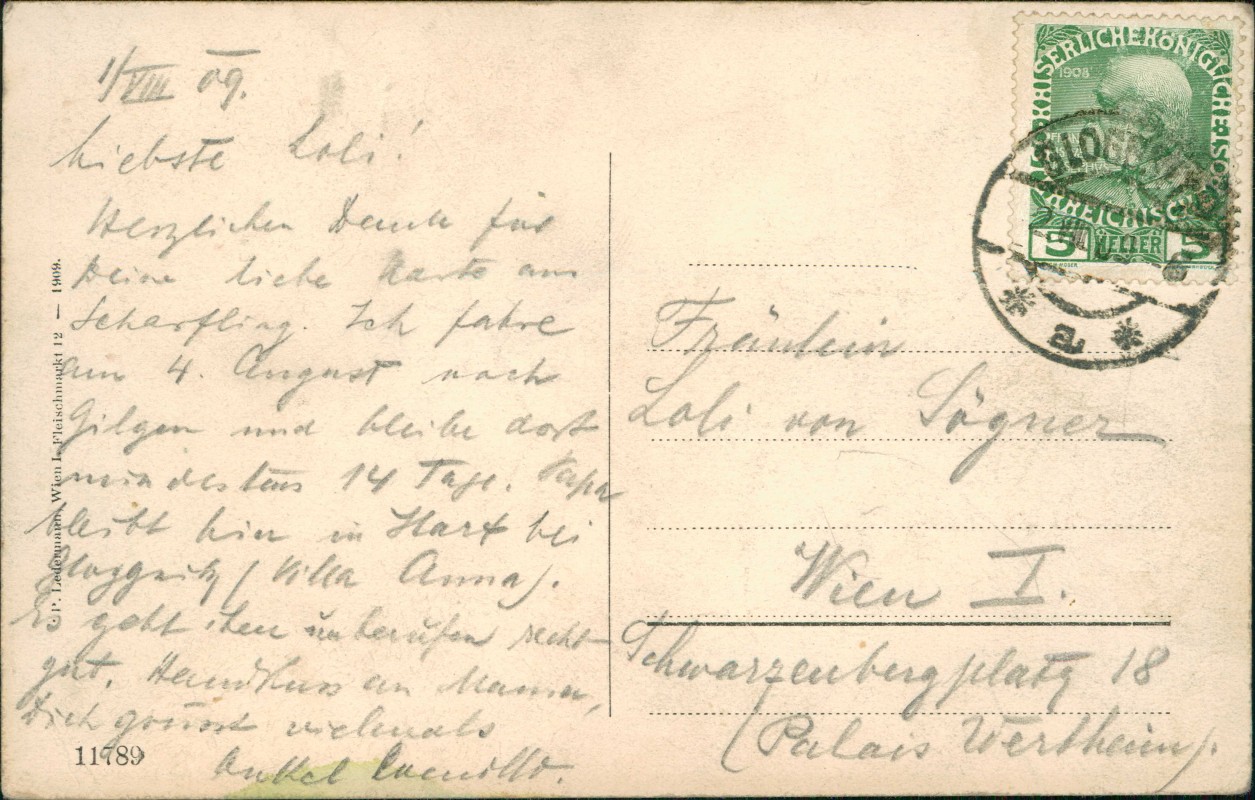 1/VIII 09.
Liebste Loli!
Herzlichen Dank für
Deine liebe Karte aus
Scharfling. Ich fahre
am 4. August nach
Gilgen und bleibe dort
mindestens 14 Tage. Papa
bleibt hier in Hart bei
Gloggnitz (Villa Anna).
Es geht ihm unberufen recht
gut. Handkuss an Mama,
Dich grüsst vielmals
Onkel Camillo.
11789
P. Ledermann, Wien I., Fleischmarkt 12 — 1909.
KAISERLICHE KÖNIGLICHE ÖSTERREICHISCHE
1908
5 HELLER 5
GLOGGNITZ
* a *
Fräulein
Loli von Sögner
Wien I.
Schwarzenbergplatz 18
(Palais Wertheim).